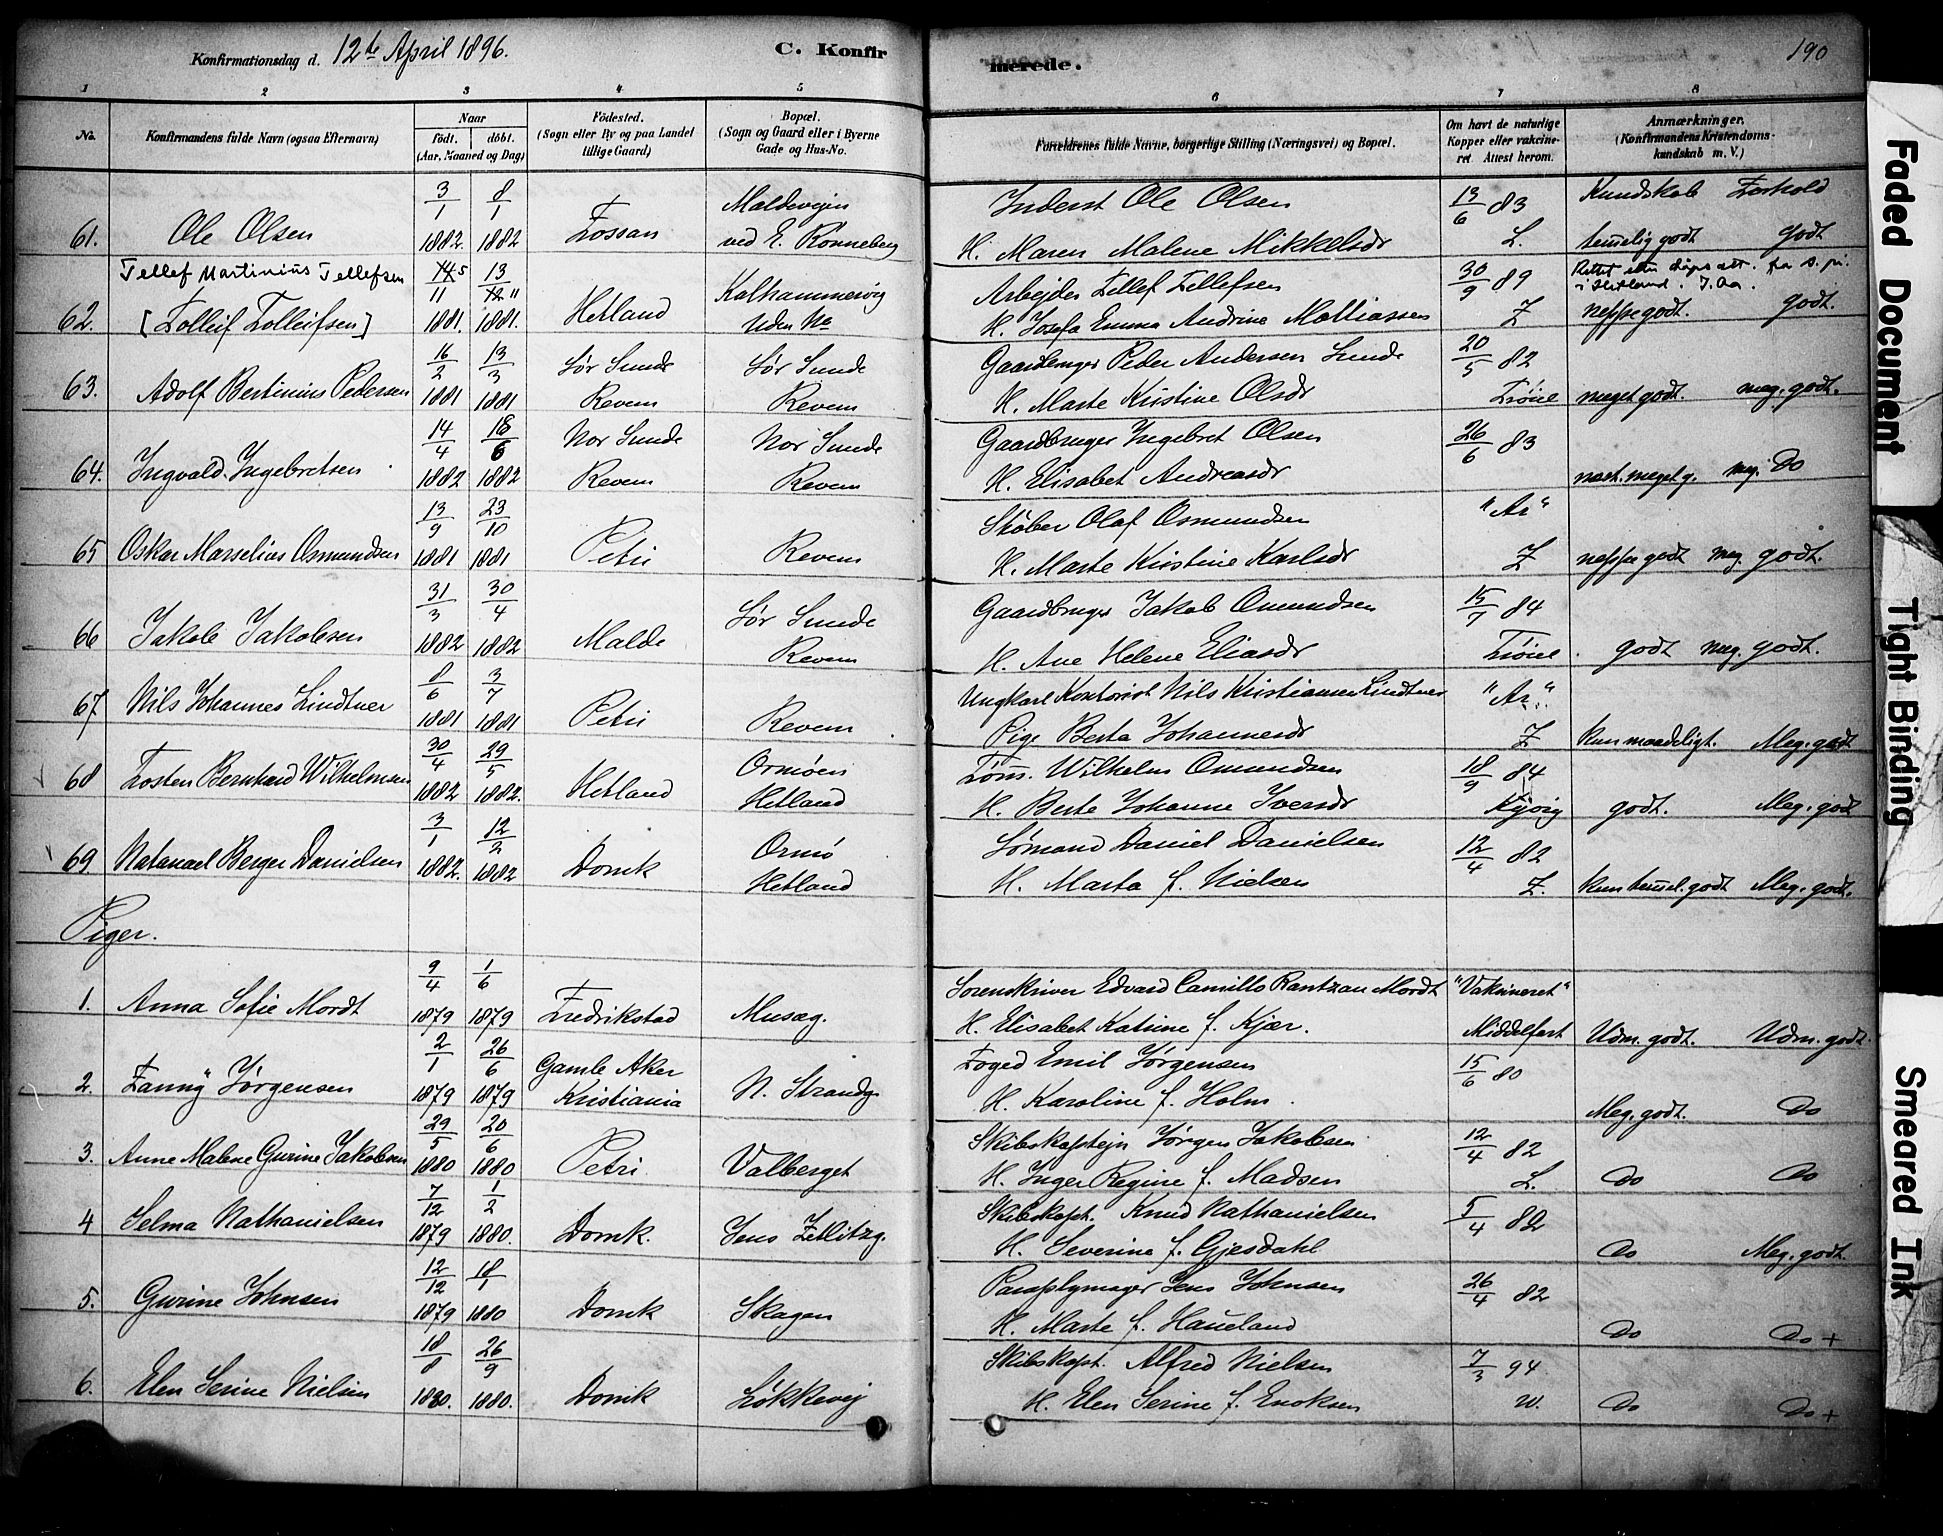 Konfirmationsdag d. 12te April 1896.
C. Konfirmerede.
190
1 2 3 4 5 6 7 8
No.
Konfirmandens fulde Navn (ogsaa Efternavn)
Naar
født. døbt.
(Aar, Maaned og Dag)
Fødested.
(Sogn eller By og paa Landet tillige Gaard)
Bopæl.
(Sogn og Gaard eller i Byerne Gade og Hus-No.
Forældrenes fulde Navne, borgerlige Stilling (Næringsvei) og Bopæl.
Om havt de naturlige Kopper eller vakcineret Attest herom.
Anmærkninger.
(Konfirmandens Kristendomskundskab m. V.)
Kundskab Forhold
61. Ole Olsen 3/1 1882. 8/1 1882 Fossan Maldevejen ved E. Rønneberg
Inderst Ole Olsen
H. Maren Malene Mikkelsdr 13/6 83 L. temelig godt godt
Tellef Martinius Tellefsen
62. [Tolleif Tolleifsen] 5/11 1881. 13/11 1881. Hetland Kalhammervig Uden No
Arbejder Tellef Tellefsen
H. Josefa Emma Andrine Mattiassen 30/9 89 Z neppe godt. godt.
63. Adolf Bertinius Pedersen 16/2 1881 13/3 1881 Sør Sunde Revem Sør Sunde Revem
Gaardbruger Peder Andersen Sunde
H. Marte Kristine Olsdr 20/5 82 Trøiel meget godt. meg. godt.
64. Ingvald Ingebretsen 14/4 1882 18/6 1882 Nor Sunde Revem Nor Sunde Revem
Gaardbruger Ingebret Olsen
H. Elisabet Andreasdr 26/6 83 næst. meget g. meg. Do
65 Oskar Marselius Osmundsen 13/9 1881 23/10 1881 Petri Revem
Støber Olaf Osmundsen
H. Marte Kristine Karlsdr "Ar" Z neppe godt meg. godt.
66 Jakob Jakobsen 31/3 1882 30/4 1882 Malde Sør Sunde Revem
Gaardbruger Jakob Omundsen
H. Ane Helene Eliasdr 15/7 84 Trøiel. godt meg. godt.
67 Nils Johannes Lindtner 8/6 1881 3/7 1881 Petri Revem
Ungkarl Kontorist Nils Kristiansen Lindtner
Pige Berta Johannesdr "Ar." Z kun maadeligt. Meg. godt
68 Tosten Bernhard Wilhelmsen 30/4 1882 29/5 1882. Hetland Ormøen Hetland
Tøms. Wilhelm Omundsen
H. Berte Johanne Iversdr 18/9 84 Kjøvig godt. Meg. godt
69. Natanael Berger Danielsen 3/1 1882. 12/2 1882 Domk Ormø Hetland
Sømand Daniel Danielsen
H. Marta f. Nielsen 12/4 82 Z. kun temel. godt Meg. godt.
Piger.
1. Anna Sofie Mordt 9/4 1879 1/6 1879 Fredrikstad Musæg.
Sorenskriver Edvard Camillo Rantzau Mordt
H. Elisabet Katrine f. Kjær. "Vakcineret" Middelfart Udm. godt. Udm. godt.
2. Fanny Jørgensen 2/1 1879 26/6 1879 Gamle Aker Kristiania N. Strandg
Foged Emil Jørgensen
H. Karoline f. Holm. 15/6 80 Meg. godt. Do
3. Anne Malene Gurine Jakobsen 29/5 1880 20/6 1880 Petri Valberget
Skibskaptejn Jørgen Jakobsen
H. Inger Regine f. Madsen 12/4 82 L. Do Do
4 Selma Nathanielsen 7/12 1879 1/2 1880. Domk. Jens Zetlitzg.
Skibskapt. Knud Nathanielsen
H. Severine f. Gjesdahl 5/4 82 Do Meg. godt.
5. Gurine Johnsen 12/12 1879 18/1 1880 Domk Skagen
Paraplymager Jens Johnsen
H. Marte f. Haueland 26/4 82 Do Do +
6. Elen Serine Nielsen 18/8 1880. 26/9 1880. Domk Løkkevej
Skibskapt. Alfred Nielsen
H. Elen Serine f. Enoksen 7/3 94. W. Do Do +
Faded Document
Tight Binding
Smeared Ink